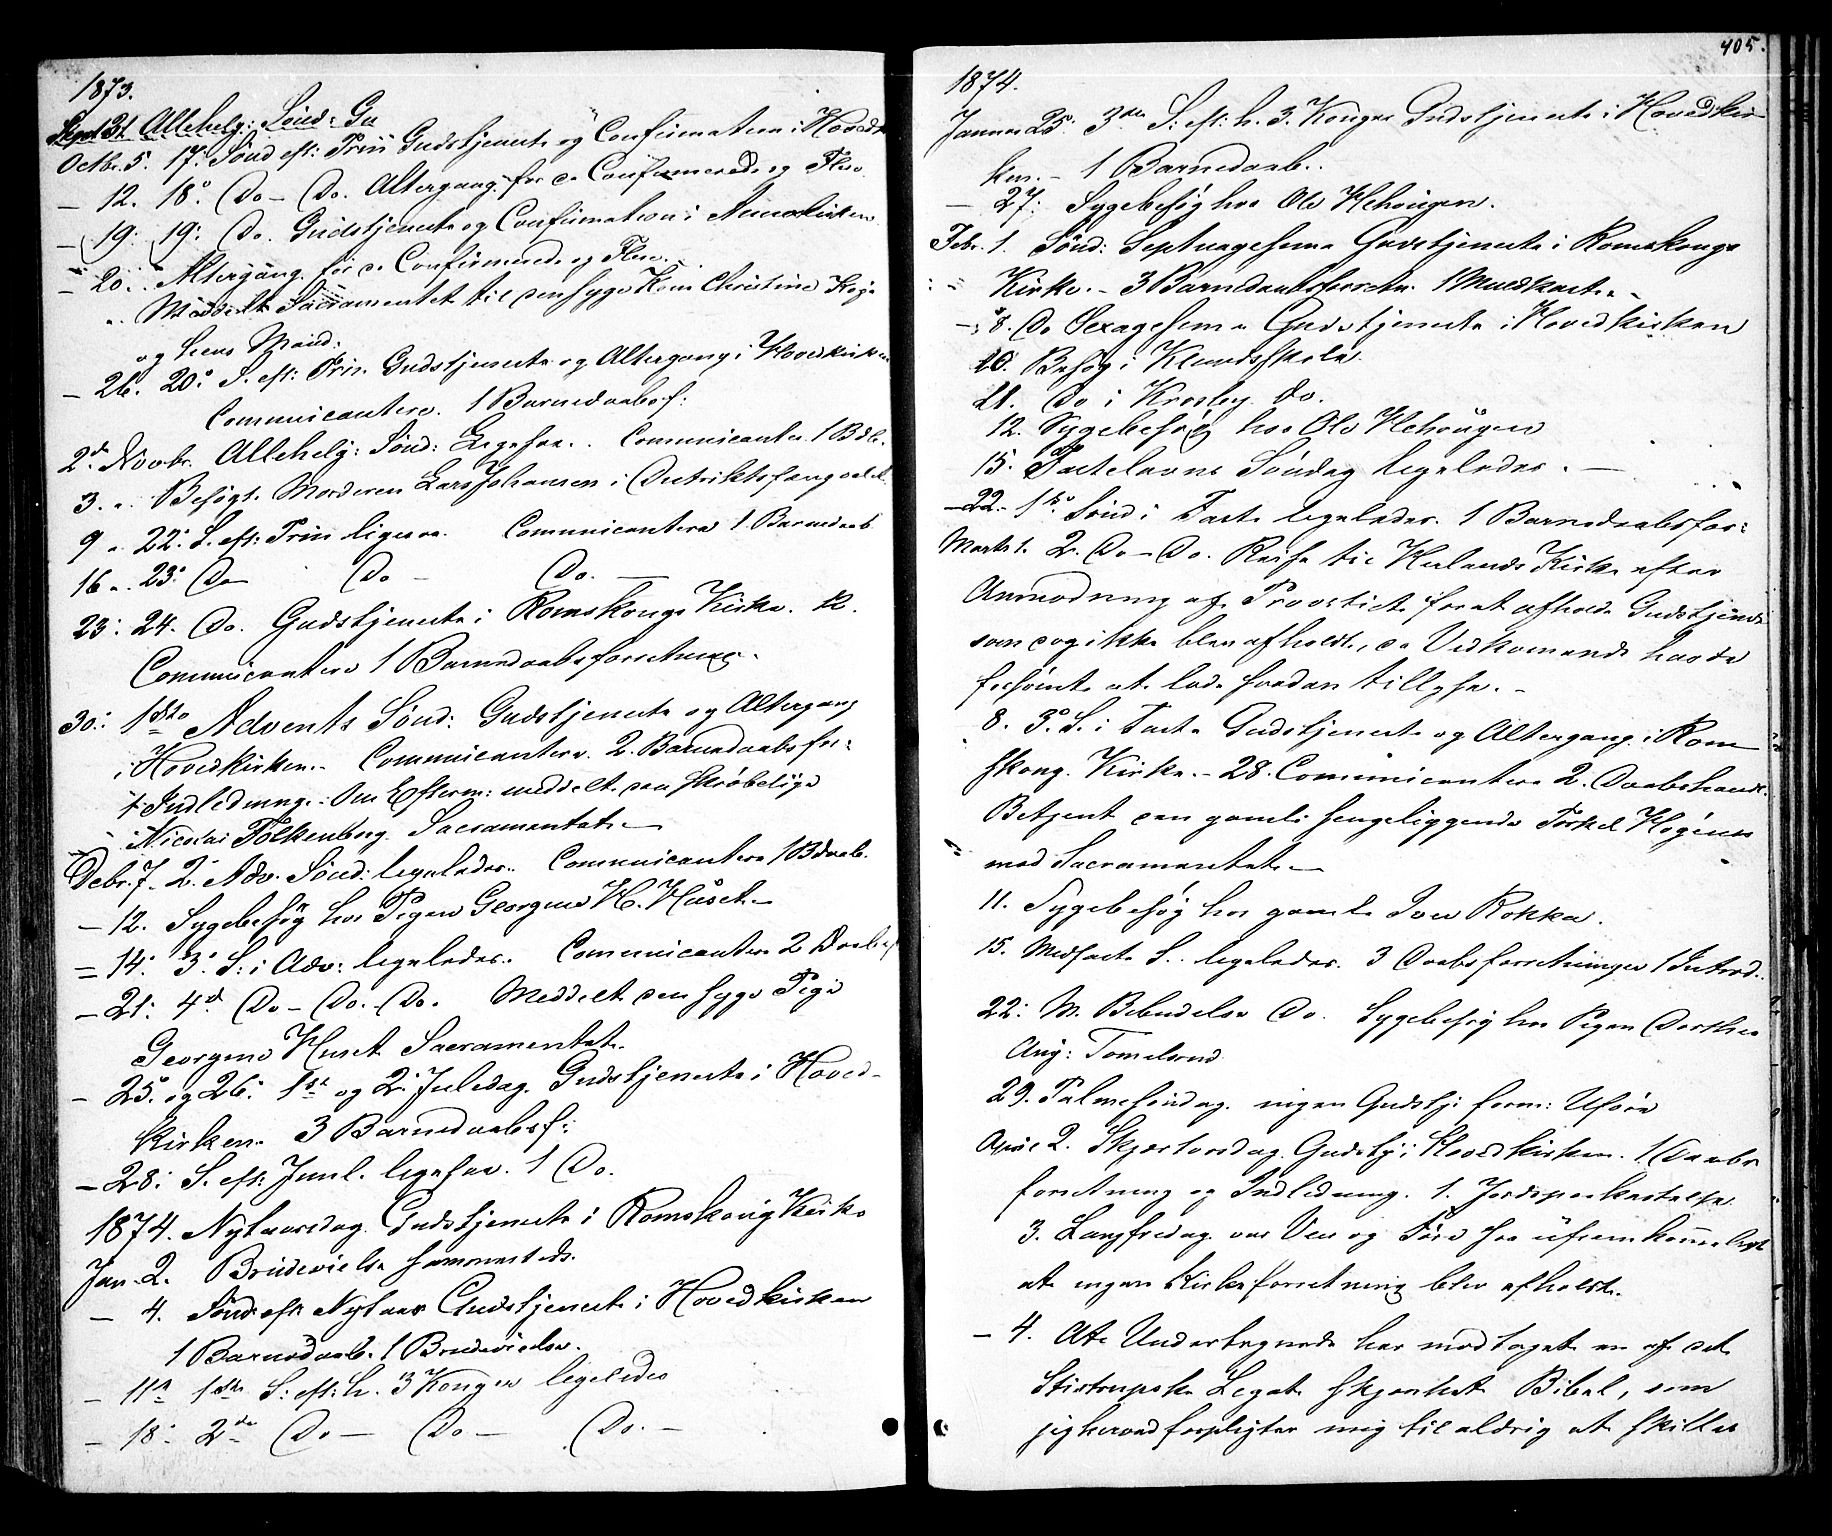 1873.
Sept 31. Allehelg: Sønd: Gu
Octbr. 5. 17. Sønd eft: Trin Gudstjeneste og Confirmation i Hovedk
— 12. 18° Do – Do. Altergang for de Confirmerede og Flere.
— 19. 19: Do. Gudstjeneste og Confirmation i
— 20. Altergang for de Confirmerede og Flere.
„ Meddelt Sacramentet til den syge Kone Christine
og hens Mand.
— 26. 20° S. eft: Trin. Gudstjeneste og Altergang i Hovedkirken
Communicantere. 1 Barnedaabsf:
2de Novbr. Allehelg: Sønd: Ligesaa. Communicanter. 1 Bdb.
3. „ Besøgt Morderen Lars Johansen i Distriktsfængselet.
9 „ 22: S. eft: Trin ligesaa. Communicantere 1 Barnedaab
16 „ 23: Do Do – Do. —
23: 24. Do. Gudstjeneste i Romskougs Kirke. R.
Communicantere 1 Barnedaabsforretning.
30: 1ste Advents Sønd: Gudstjeneste og Altergang
i Hovedkirken. Communicantere. 2. Barnedaabsfor:
1 Indledning. Om Efterm: meddelt den skrøbelige
Nicolai Folkenborg Sacramentet. —
Debr. 7. 2. Adv. Sønd: ligeledes. Communicantere 1 Bdaab.
— 12. Sygebesøg hos Pigen Georgine H. Huset. –
— 14. 3: S: i Adv: ligeledes. Communicantere 2 Daabsf
— 21: 4de Do – Do. – Do. Meddelt den syge Pige
Georgine Huset Sacramentet.
— 25. og 26. 1ste og 2: Juledag. Gudstjeneste i Hoved-
Kirken. 3 Barnedaabsf:
— 28: S. eft: Juul. ligesaa. 1 Do.
1874. Nytaarsdag Gudstjeneste i Romskoug Kirke
Jan. 2. Brudevielse sammesteds.
— 4. Sønd eft: Nytaar Gudstjeneste i Hovedkirken
1 Barnedaab. 1 Brudevielse.
— 11te 1ste S: eft: h. 3 Konger ligeledes
— 18: 2de Do — Do — Do. —
405.
1874.
Januar 25. 3die S: eft: h. 3. Konger Gudstjeneste i Hovedkir-
ken. – 1 Barnedaab.
— 27: Sygebesøg hos Ole
Febr. 1. Sønd: Septuagesima Gudstjeneste i Romskougs
Kirke. – 3 Barnedaabsforretn.
— 8. Do Sexagesima Gudstjeneste i Hovedkirken
10. Besøg i Klundsskole
21. Do i Krosby Do.
12. Sygebesøg hos Ole
15. Fastelavns Søndag ligeledes. —
— 22. 1ste Sønd i Faste ligeledes. 1 Barnedaabsfor:
Marts 1. 2. Do – Do. Reise til Herlands Kirke efter
Anmodning af Provstiet for at afholde Gudstjeneste
som dog ikke blev afholdt, da Vedkommende havde
forsømt at lade saadan tillyse. –
8. 3° S. i Faste Gudstjeneste og Altergang i Rom-
skoug Kirke. – 28. Communicantere 2. Daabshandl.
Betjent den gamle sengeliggende Torkel
med Sacramentet. —
11. Sygebesøg hos gamle Iver Kokker.
15. Midfaste S. ligeledes. 3 Daabsforretninger 1 Introd.
22: M. Bebudelse Do. Sygebesøg hos Pigen Dorthea
Aug: Tomelsrud
29. Palmesøndag. ingen Gudstj: form: Uføre
April 2. Skjærtorsdag. Gudstj: i Hovedkirken. 1 Daabs
forretning og Indledning. 1. Jordspaakastelse.
3. Langfredag. var Vei og Føre saa ufremkommeligt
at ingen Kirkeforretning blev afholdt.
— 4. At Undertegnede har modtaget en af det
Stistrupske Legat skjænket Bibel, som
jeg herved forpligter mig til aldrig at skilles